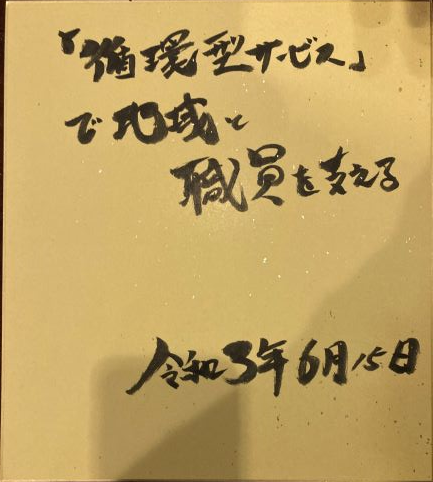 「循環型サービス」
で地域と
職員を支える
令和3年6月15日